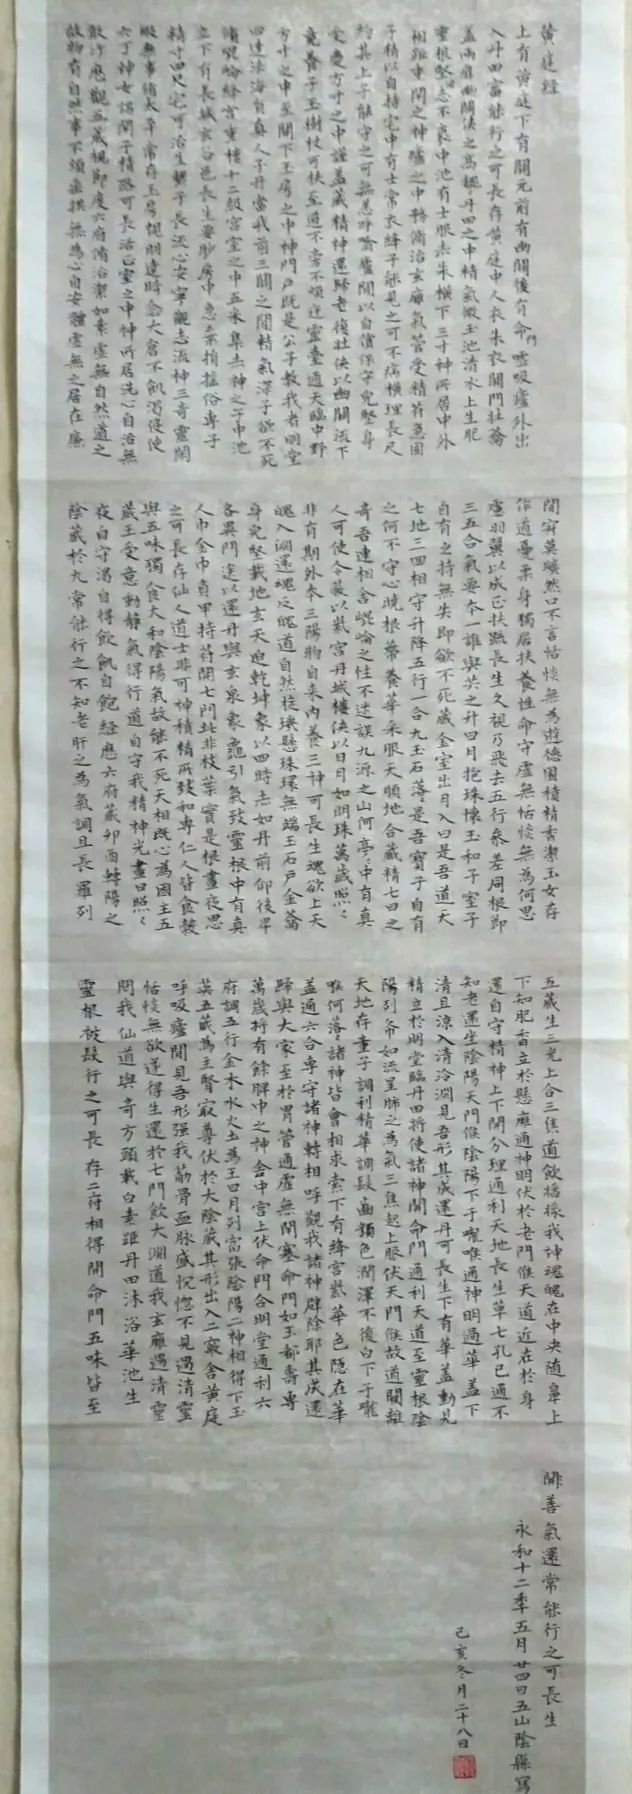 黄庭經
上有黄庭下有關元前有幽闕後有命門嘘吸廬外出
入丹田審能行之可長存黄庭中人衣朱衣關門壮籥
盖兩扉幽闕侠之高魏丹田之中精氣微玉池清水上生肥
靈根堅志不衰中池有士服赤朱横下三寸神所居中外
相距重閉之神廬之中務脩治玄廱氣管受精符急固
子精以自持宅中有士常衣絳子能見之可不病横理長尺
約其上子能守之可無恙呼噏廬間以自償保守完堅身
受慶方寸之中謹盖藏精神還歸老復壮侠以幽闕流下
竟養子玉樹杖可扶至道不煩不旁迕靈臺通天臨中野
方寸之中至關下玉房之中神門户既是公子教我者明堂
四達法海員真人子丹當我前三關之間精氣深子欲不死
脩崐崘絳宫重樓十二级宫室之中五采集赤神之子中池
立下有長城玄谷邑長生要眇房中急棄捐摇俗專子
精寸田尺宅可治生繫子長流心安寧觀志流神三奇靈閑
暇無事脩太平常存玉房視明達時念大倉不飢渴役使
六丁神女謁閉子精路可長活正室之中神所居洗心自治無
敢汙歴觀五藏視節度六府脩治潔如素虚無自然道之
故物有自然事不煩垂拱無為心自安體虚無之居在廉
間寂莫曠然口不言恬惔無為遊德園積精香潔玉女存
作道憂柔身獨居扶養性命守虚無恬惔無為何思
慮羽翼以成正扶疏長生久視乃飛去五行參差同根節
三五合氣要本一誰與共之升日月抱珠懷玉和子室子
自有之持無失即欲不死藏金室出月入日是吾道天
七地三回相守升降五行一合九玉石落落是吾寶子自有
之何不守心曉根蒂養華采服天順地合藏精七日之
奇吾連相合崐崘之性不迷誤九源之山何亭亭中有真
人可使令蔽以紫宫丹城樓侠以日月如明珠萬歲照照
非有期外本三陽物自来内養三神可長生魂欲上天
魄入淵還魂反魄道自然㧾璣懸珠環無端玉石戶金籥
身完堅載地玄天迫乾坤象以四時赤如丹前仰後卑
各異門送以還丹與玄泉象龜引氣致靈根中有真
人巾金巾負甲持符開七門此非枝葉實是根晝夜思
之可長存仙人道士非可神積精所致和專仁人皆食榖
與五味獨食大和陰陽氣故能不死天相既心為國主五
藏王受意動静氣得行道自守我精神光晝日照照
夜自守渴自得飲飢自飽經歴六府藏卯酉轉陽之
陰藏於九常能行之不知老肝之為氣調且長羅列
五藏生三光上合三焦道飲醬漿我神魂魄在中央随鼻上
下知肥香立於懸廱通神明伏於老門候天道近在於身
還自守精神上下開分理通利天地長生草七孔已通不
知老還坐陰陽天門候陰陽下于嚨喉通神明過華盖下
清且涼入清泠淵見吾形其成還丹可長生下有華盖動見
精立於明堂臨丹田將使諸神開命門通利天道至靈根陰
陽列布如流星肺之為氣三焦起上服伏天門候故道闚離
天地存童子調利精華調髮齒顔色潤澤不復白下于嚨
喉何落落諸神皆會相求索下有絳宫紫華色隱在華
盖通六合專守諸神轉相呼觀我諸神辟除耶其成還
歸與大家至於胃管通虚無閉塞命門如玉都壽專
萬歲將有餘脾中之神舍中宫上伏命門合明堂通利六
府調五行金木水火土為王日月列宿張陰陽二神相得下玉
英五藏為主腎㝡尊伏於大陰藏其形出入二竅舍黄庭
呼吸廬間見吾形强我筋骨血脉盛恍惚不見過清靈
恬惔無欲遂得生還於七門飲大淵道我玄廱過清靈
問我仙道與奇方頭載白素距丹田沐浴華池生
靈根被髮行之可長存二府相得開命門五味皆至
開善氣還常能行之可長生
永和十二年五月廿四日五山陰縣寫
己亥冬月二十八日